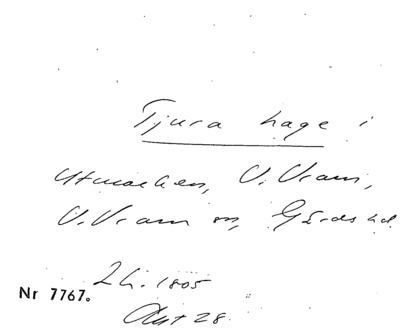 Tjura hage i
Utmarken, V. Vram,
V. Vram sn, Gärds hd.
L h. 1805
Nr 7767.
Akt 28.